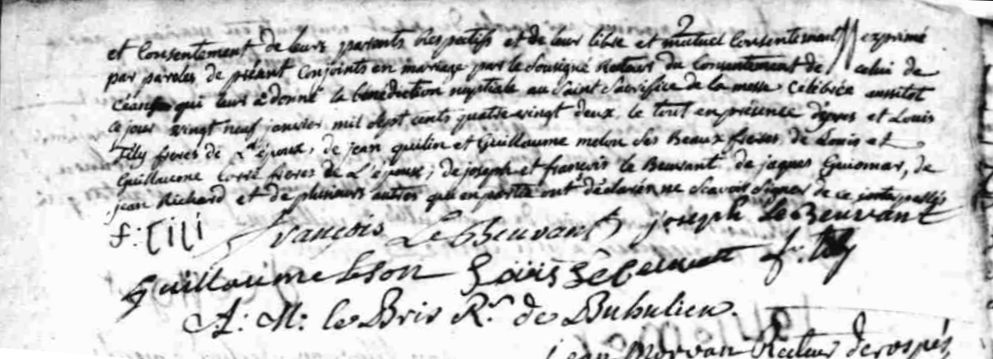 et Consentement de leurs parents Respectifs et de leur libre et mutuel Consentement exprimé
par paroles de présant Conjoints en mariage par le Sousigné Recteur du Consentement de celui de
qui leur a donné la bénédiction nuptiale au Saint Sacrifice de la messe Célébrée aussitot
Ce jour vingt neuf janvier mil Sept cents quatre vingt deux. le tout en présence d'yves et Louis
Tily freres de L'époux, de jean quilin et Guillaume melou Ses Beaux freres, de Louis et
Guillaume freres de L'épouse, de joseph et françois le Beuvant de jaques Guiomar, de
jean Richard et de plusieurs autres qui en partie ont déclaré ne Scavoir Signer de ce interpellés
f: Tili françois LeBeuvant joseph LeBeuvant
Guillaume f. tily
A: M: le Bris R.r de Buhulien.
jean Morvan Recteur de rospés